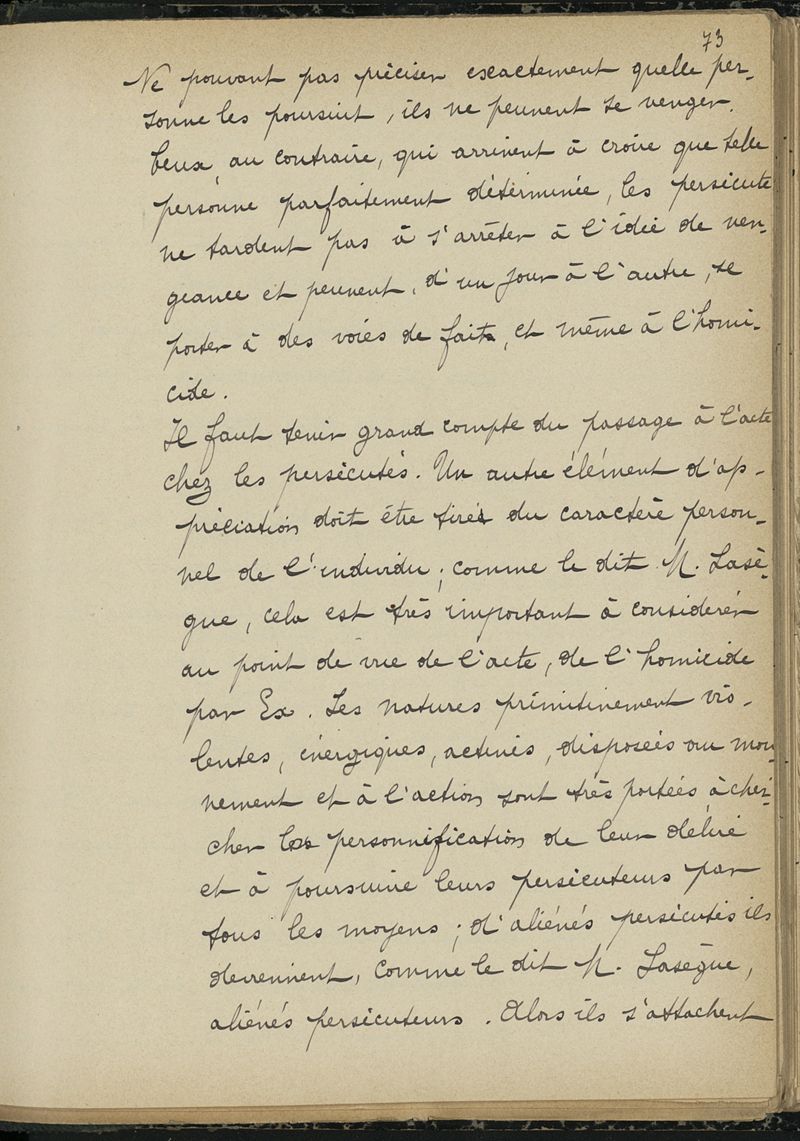 73
Ne pouvant pas préciser exactement quelle per-
sonne les poursuit, ils ne peuvent se venger.
Ceux, au contraire, qui arrivent à croire que telle
personne parfaitement déterminée, les persécute
ne tardent pas à s'arrêter à l'idée de ven-
geance et peuvent, d'un jour à l'autre, se
porter à des voies de faits, et même à l'homi-
cide.
Il faut tenir grand compte du passage à l'acte
chez les persécutés. Un autre élément d'ap-
préciation doit être tiré du caractère person-
nel de l'individu; comme le dit M. Lasè-
gue, cela est très important à considérer
au point de vue de l'acte, de l'homicide
par Ex. Les natures primitivement vio-
lentes, énergiques, actives, disposées au mou-
vement et à l'action sont très portées à cher-
cher la personnification de leur délire
et à poursuivre leurs persécuteurs par
tous les moyens; d'aliénés persécutés ils
deviennent, comme le dit M. Lasègue,
aliénés persécuteurs. Alors ils s'attachent